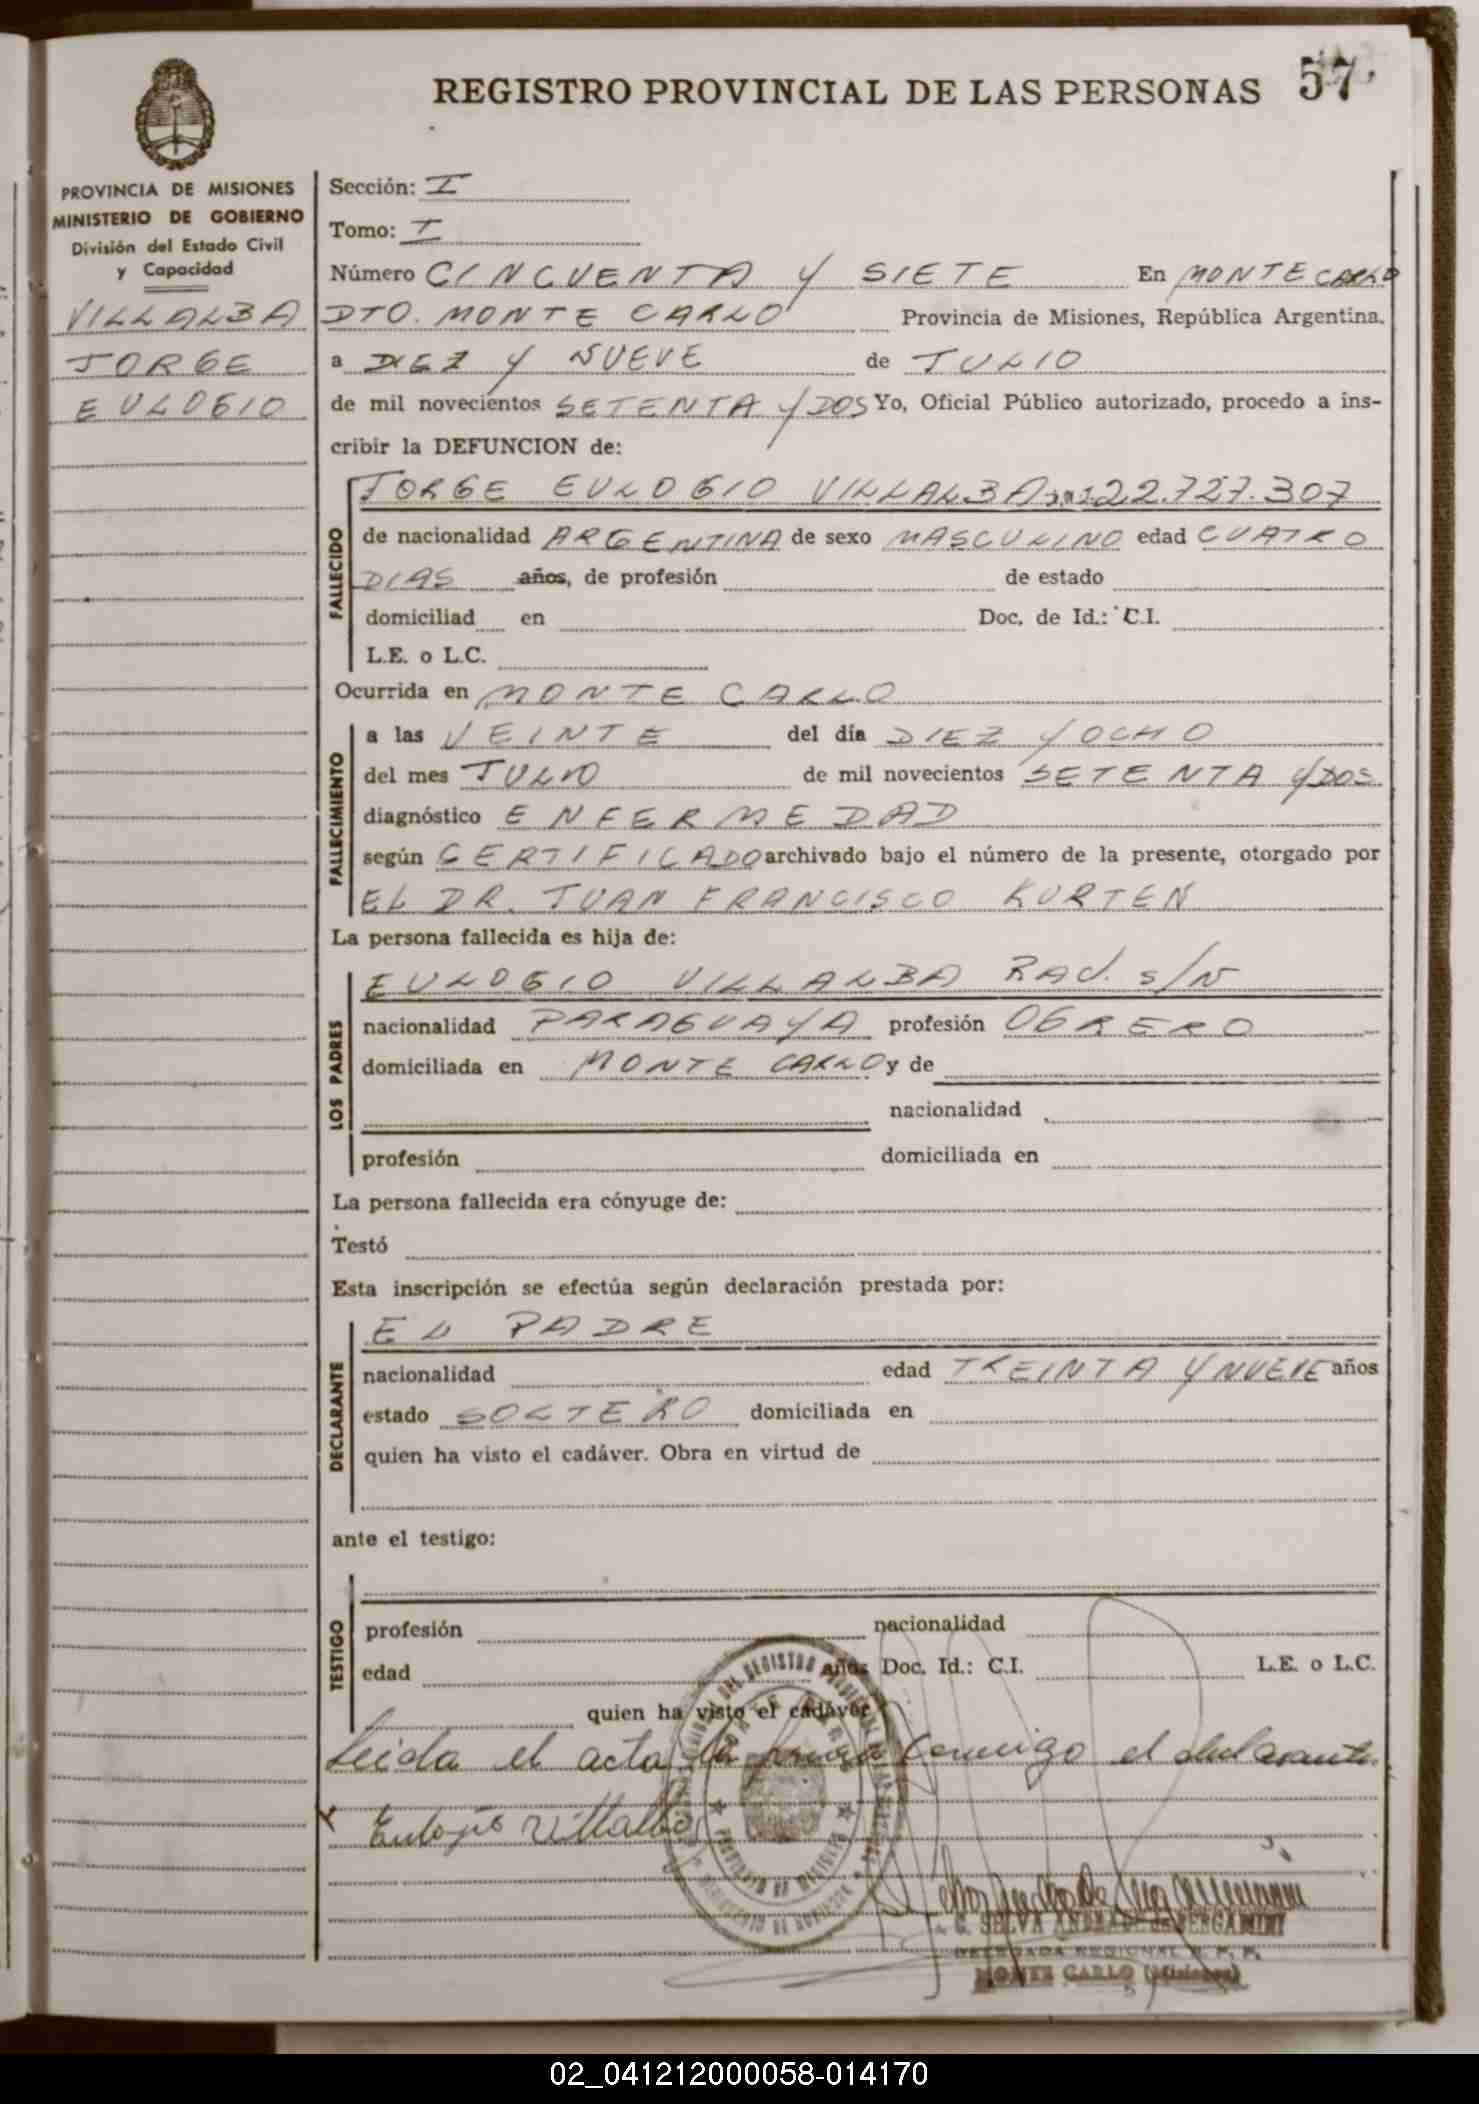 REGISTRO PROVINCIAL DE LAS PERSONAS 57
PROVINCIA DE MISIONES
MINISTERIO DE GOBIERNO
División del Estado Civil
y Capacidad
VILLALBA
JORGE
EULOGIO
Sección: I
Tomo: I
Número CINCUENTA Y SIETE En MONTE CARLO
DTO. MONTE CARLO Provincia de Misiones, República Argentina,
a DIEZ Y NUEVE de JULIO
de mil novecientos SETENTA Y DOS Yo, Oficial Público autorizado, procedo a ins-
cribir la DEFUNCION de:
FALLECIDO
JORGE EULOGIO VILLALBA 22.727.307
de nacionalidad ARGENTINA de sexo MASCULINO edad CUATRO
DIAS años, de profesión de estado
domiciliad en Doc. de Id.: C.I.
L.E. o L.C.
Ocurrida en MONTE CARLO
FALLECIMIENTO
a las VEINTE del día DIEZ Y OCHO
del mes JULIO de mil novecientos SETENTA Y DOS
diagnóstico ENFERMEDAD
según CERTIFICADO archivado bajo el número de la presente, otorgado por
EL DR. JUAN FRANCISCO KURTEN
La persona fallecida es hija de:
LOS PADRES
EULOGIO VILLALBA RAD. S/N
nacionalidad PARAGUAYA profesión OBRERO
domiciliada en MONTE CARLO y de
nacionalidad
profesión domiciliada en
La persona fallecida era cónyuge de:
Testó
Esta inscripción se efectúa según declaración prestada por:
DECLARANTE
EL PADRE
nacionalidad edad TREINTA Y NUEVE años
estado SOLTERO domiciliada en
quien ha visto el cadáver. Obra en virtud de
ante el testigo:
TESTIGO
profesión nacionalidad
edad años Doc. Id.: C.I. L.E. o L.C.
quien ha visto el cadáver
Leida el acta la firma conmigo el declarante.
Eulogio Villalba
C. SELVA ANDRADE de BERGAMINI
DELEGADA REGIONAL R. P. P.
MONTE CARLO (Misiones)
02_041212000058-014170